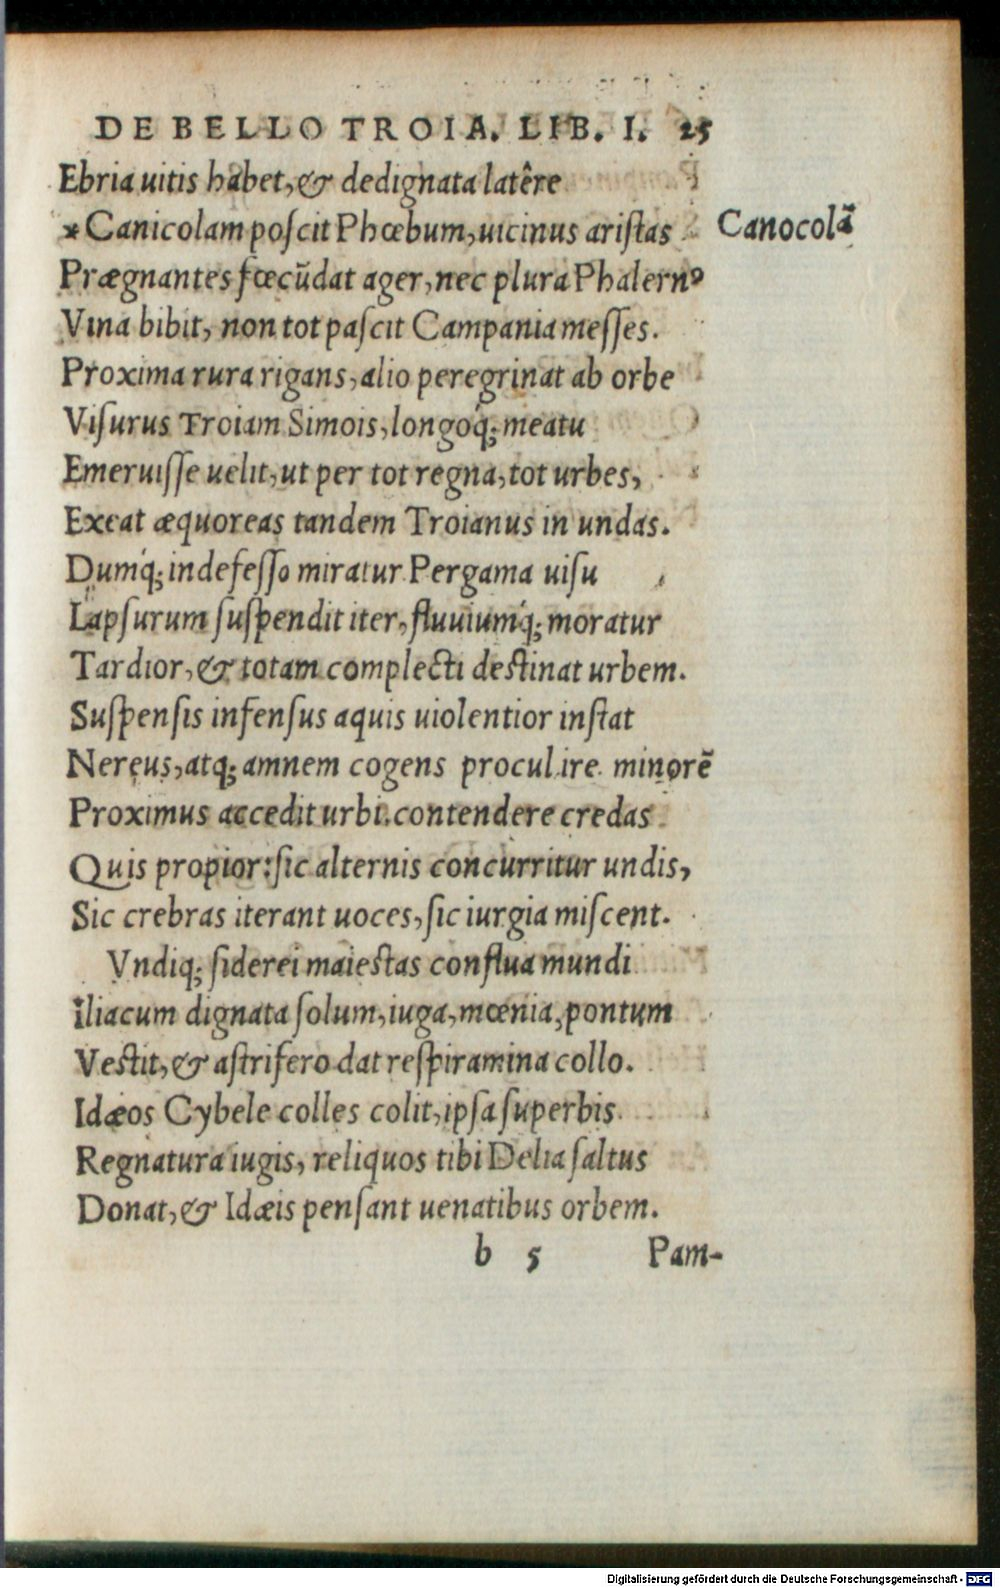 DE BELLO TROIA. LIB. I. 25
Ebria uitis habet, & dedignata latêre
*Canicolam poſcit Phœbum, uicinus ariſtas Canocolã
Prægnantes fœcũdat ager, nec plura Phalernꝰ
Vina bibit, non tot paſcit Campania meſſes.
Proxima rura rigans, alio peregrinat ab orbe
Viſurus Troiam Simois, longoq́; meatu
Emeruiſſe uelit, ut per tot regna, tot urbes,
Exeat æquoreas tandem Troianus in undas.
Dumq́; indefeſſo miratur Pergama uiſu
Lapſurum ſuſpendit iter, fluuiumq́; moratur
Tardior, & totam complecti deſtinat urbem.
Suſpenſis infenſus aquis uiolentior inſtat
Nereus, atq; amnem cogens procul ire minorẽ
Proximus accedit urbi. contendere credas
Quis propior: ſic alternis concurritur undis,
Sic crebras iterant uoces, ſic iurgia miſcent.
Vndiq; ſiderei maieſtas conflua mundi
Iliacum dignata ſolum, iuga, mœnia, pontum
Veſtit, & aſtrifero dat reſpiramina collo.
Idæos Cybele colles colit, ipſa ſuperbis
Regnatura iugis, reliquos tibi Delia ſaltus
Donat, & Idæis penſant uenatibus orbem.
b 5 Pam-
Digitalisierung gefördert durch die Deutsche Forschungsgemeinschaft - DFG